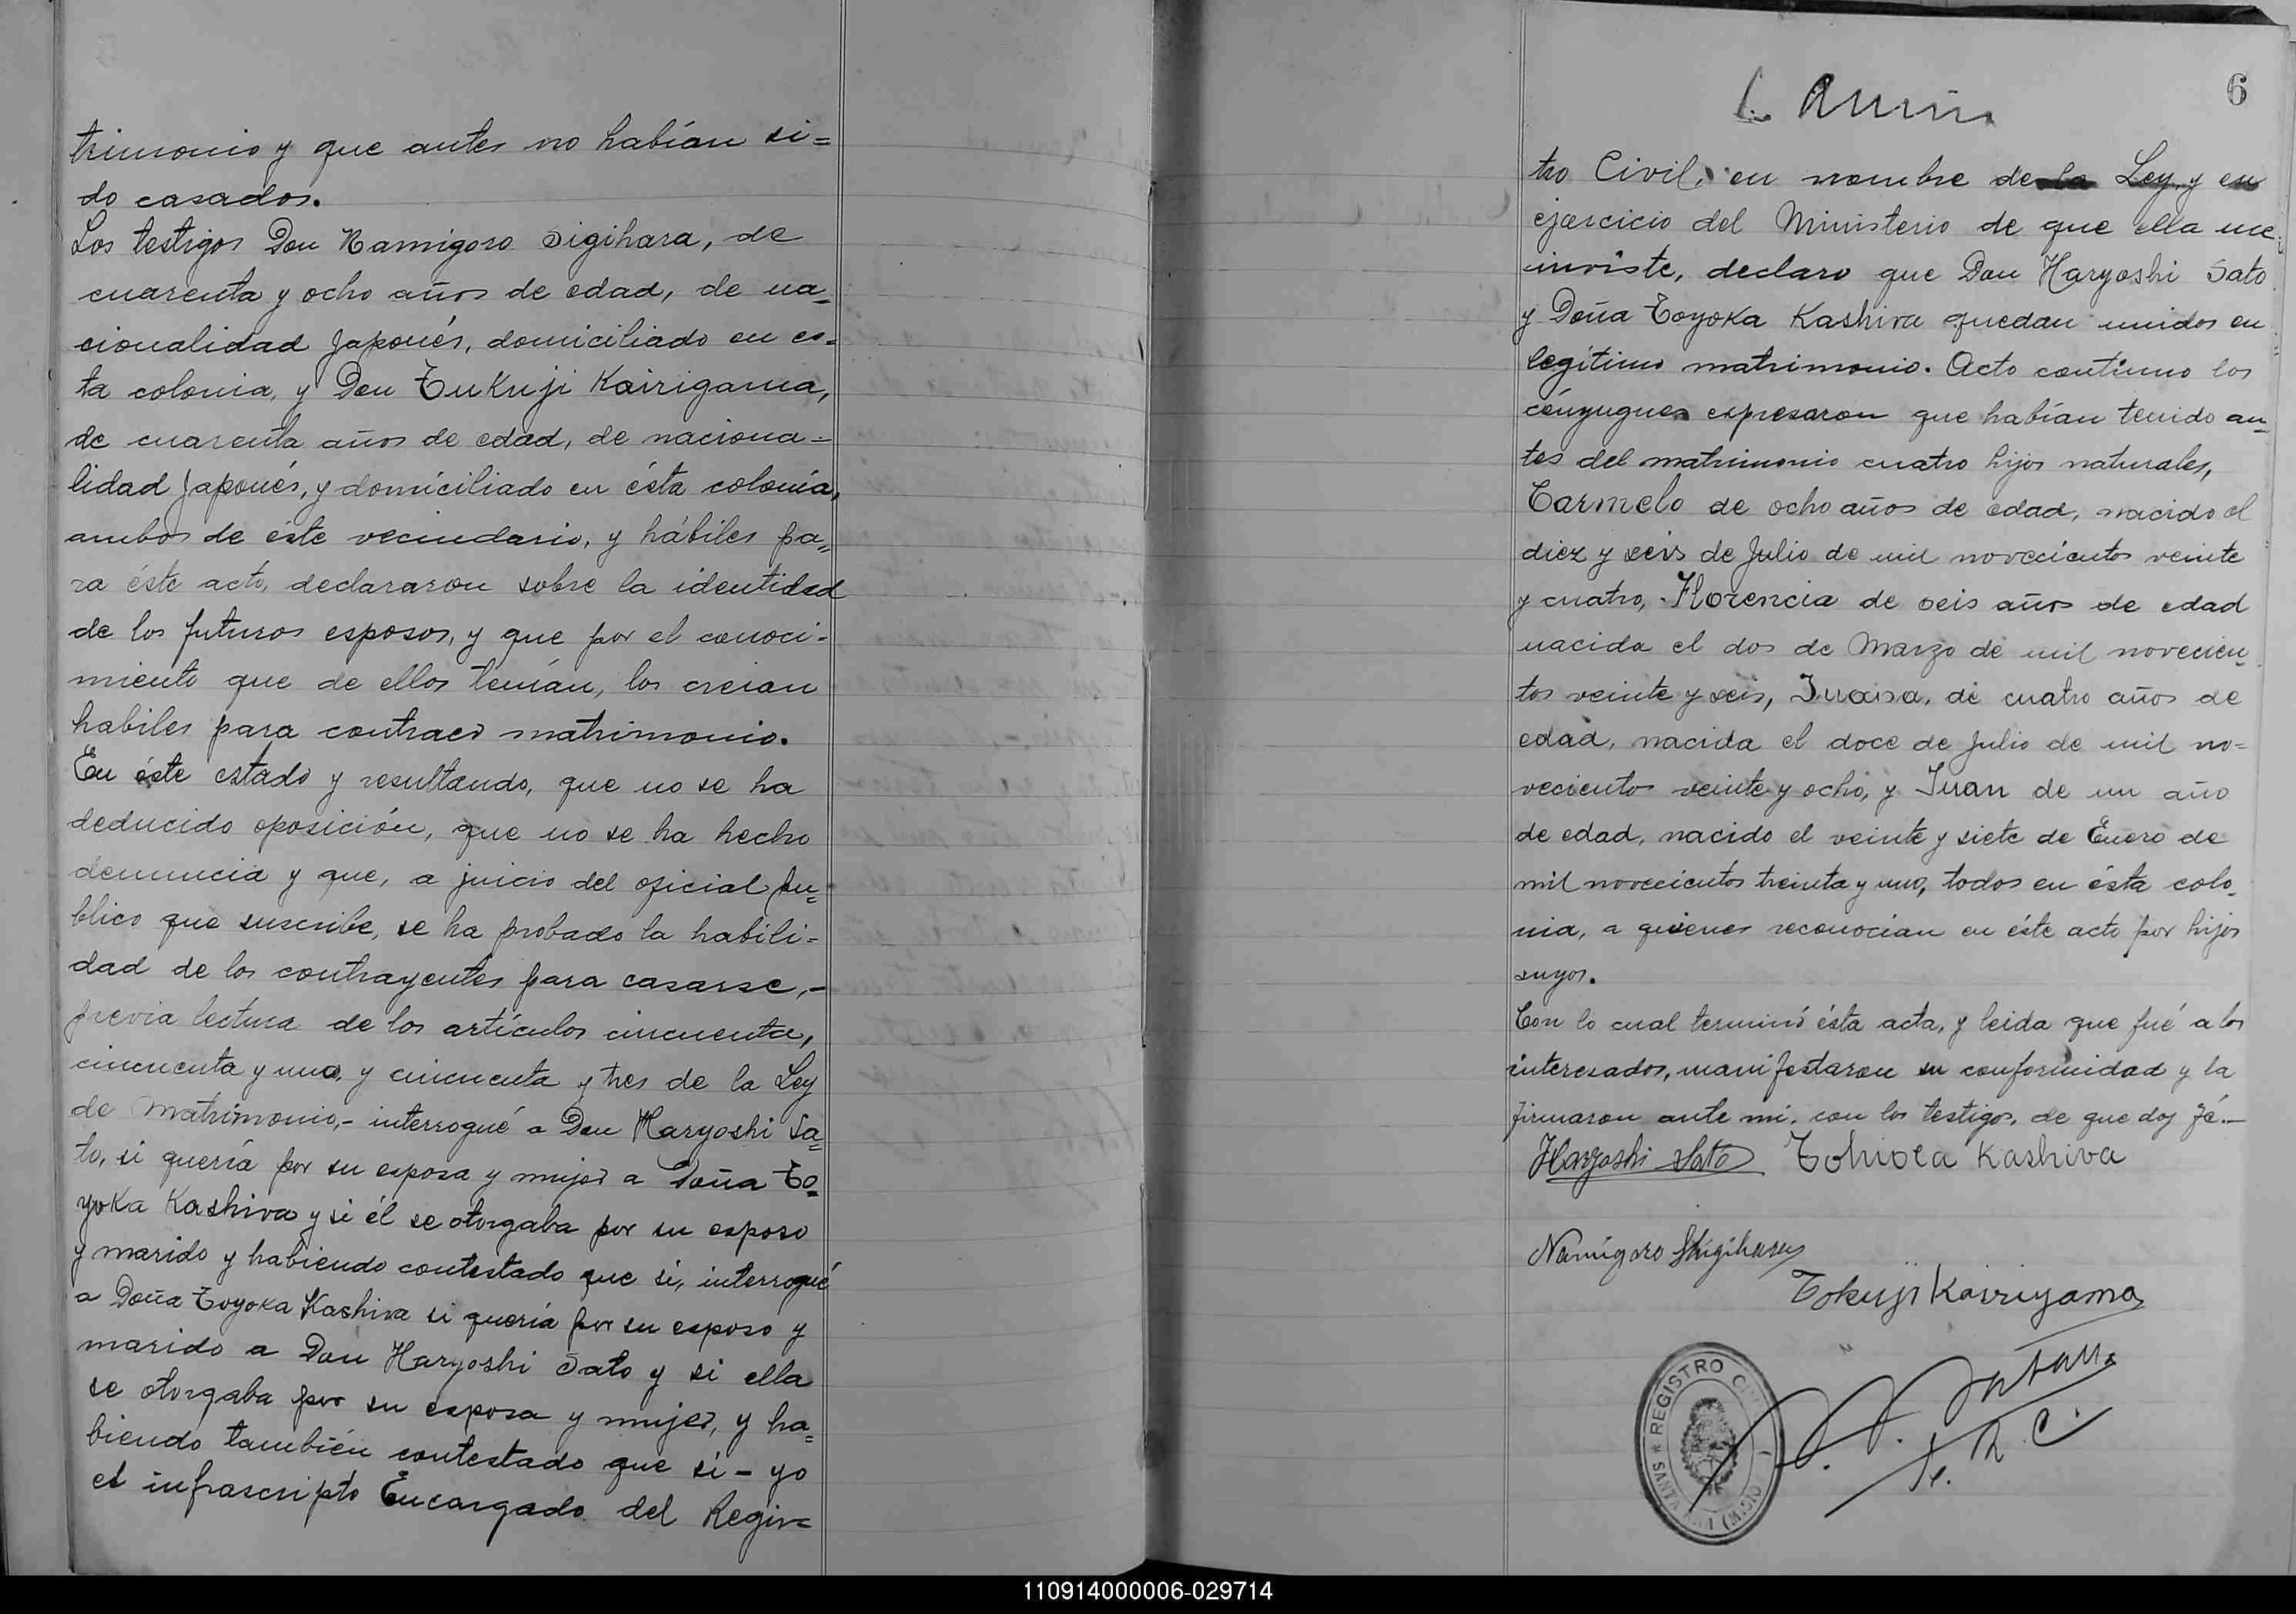 trimonio y que antes no habían si=
do casados.
Los testigos Don Namigoro Sigihara, de
cuarenta y ocho años de edad, de na=
cionalidad Japonés, domiciliado en es=
ta colonia, y Don Tukuji Kairigama,
de cuarenta años de edad, de naciona=
lidad Japonés, y domiciliado en ésta colonia,
ambos de éste vecindario, y hábiles pa=
ra éste acto, declararon sobre la identidad
de los futuros esposos, y que por el conoci-
miento que de ellos tenían, los creian
habiles para contraer matrimonio.
En éste estado y resultando, que no se ha
deducido oposición, que no se ha hecho
denuncia y que, a juicio del oficial pu=
blico que suscribe, se ha probado la habili=
dad de los contrayentes para casarse,-
previa lectura de los artículos cincuenta,
cincuenta y uno, y cincuenta y tres de la Ley
de Matrimonio,- interrogué a Don Haryoshi Sa=
to, si quería por su esposa y mujer a Doña To=
yoka Kashiva y si él se otorgaba por su esposo
y marido y habiendo contestado que si, interrogué
a Doña Toyoka Kashiva si quería por su esposo y
marido a Don Haryoshi Sato y si ella
se otorgaba por su esposa y mujer, y ha=
biendo también contestado que si - yo
el infrascripto Encargado del Regis=
6
tro Civil, en nombre de la Ley, y en
ejercicio del Ministerio de que ella me
inviste, declaro que Don Haryoshi Sato
y Doña Toyoka Kashiva quedan unidos en
legítimo matrimonio. Acto continuo los
cónyugues expresaron que habían tenido an=
tes del matrimonio cuatro hijos naturales,
Carmelo de ocho años de edad, nacido el
diez y seis de Julio de mil novecientos veinte
y cuatro, Florencia de seis años de edad
nacida el dos de Marzo de mil novecien=
tos veinte y seis, Juana, de cuatro años de
edad, nacida el doce de Julio de mil no=
vecientos veinte y ocho, y Juan de un año
de edad, nacido el veinte y siete de Enero de
mil novecientos treinta y uno, todos en ésta colo=
nia, a quienes reconocían en éste acto por hijos
suyos.
Con lo cual terminó ésta acta, y leida que fué a los
interesados, manifestaron su conformidad y la
firmaron ante mi, con los testigos, de que doy fé.-
Haryoshi Sato Tohioca Kashiva
Namigoro Shigihara
Tokuji Kairiyama
REGISTRO
SANTA
110914000006-029714